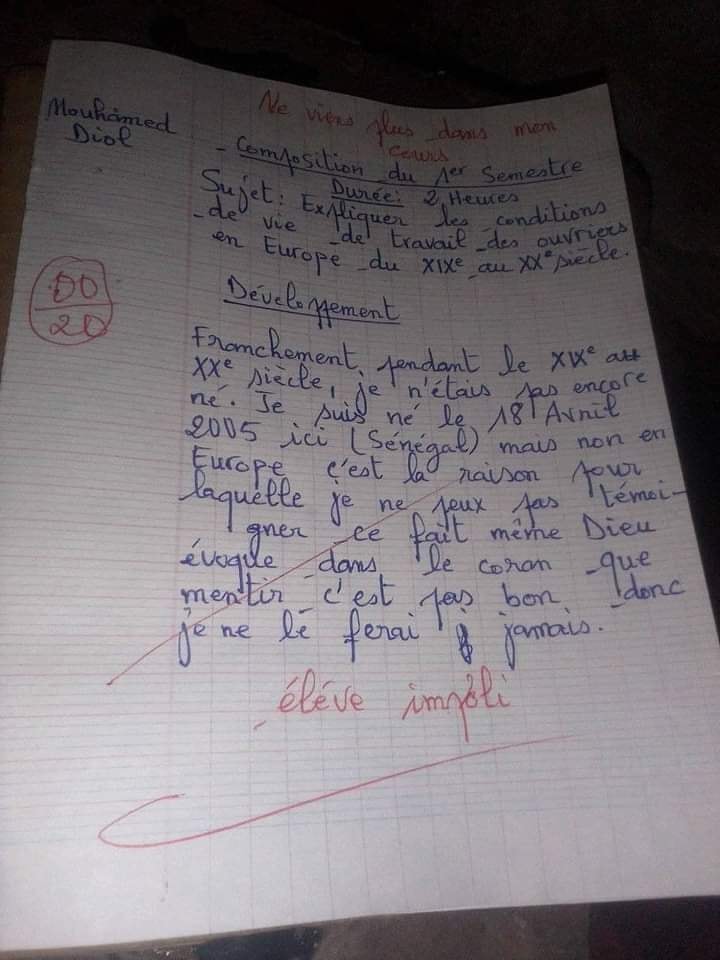 Ne viens plus dans mon
cours
Mouhamed
Diol
- Composition du 1er Semestre
Durée: 2 Heures
Sujet: Expliquer les conditions
de vie de travail des ouvriers
en Europe du XIXe au XXe siècle.
00
20
Développement
Franchement, pendant le XIXe au
XXe siècle, je n'étais pas encore
né. Je suis né le 18 Avril
2005 ici (Sénégal) mais non en
Europe c'est la raison pour
laquelle je ne peux pas témoi-
gner ce fait même Dieu
évoque dans le coran que
mentir c'est pas bon donc
je ne le ferai jamais.
éléve impoli